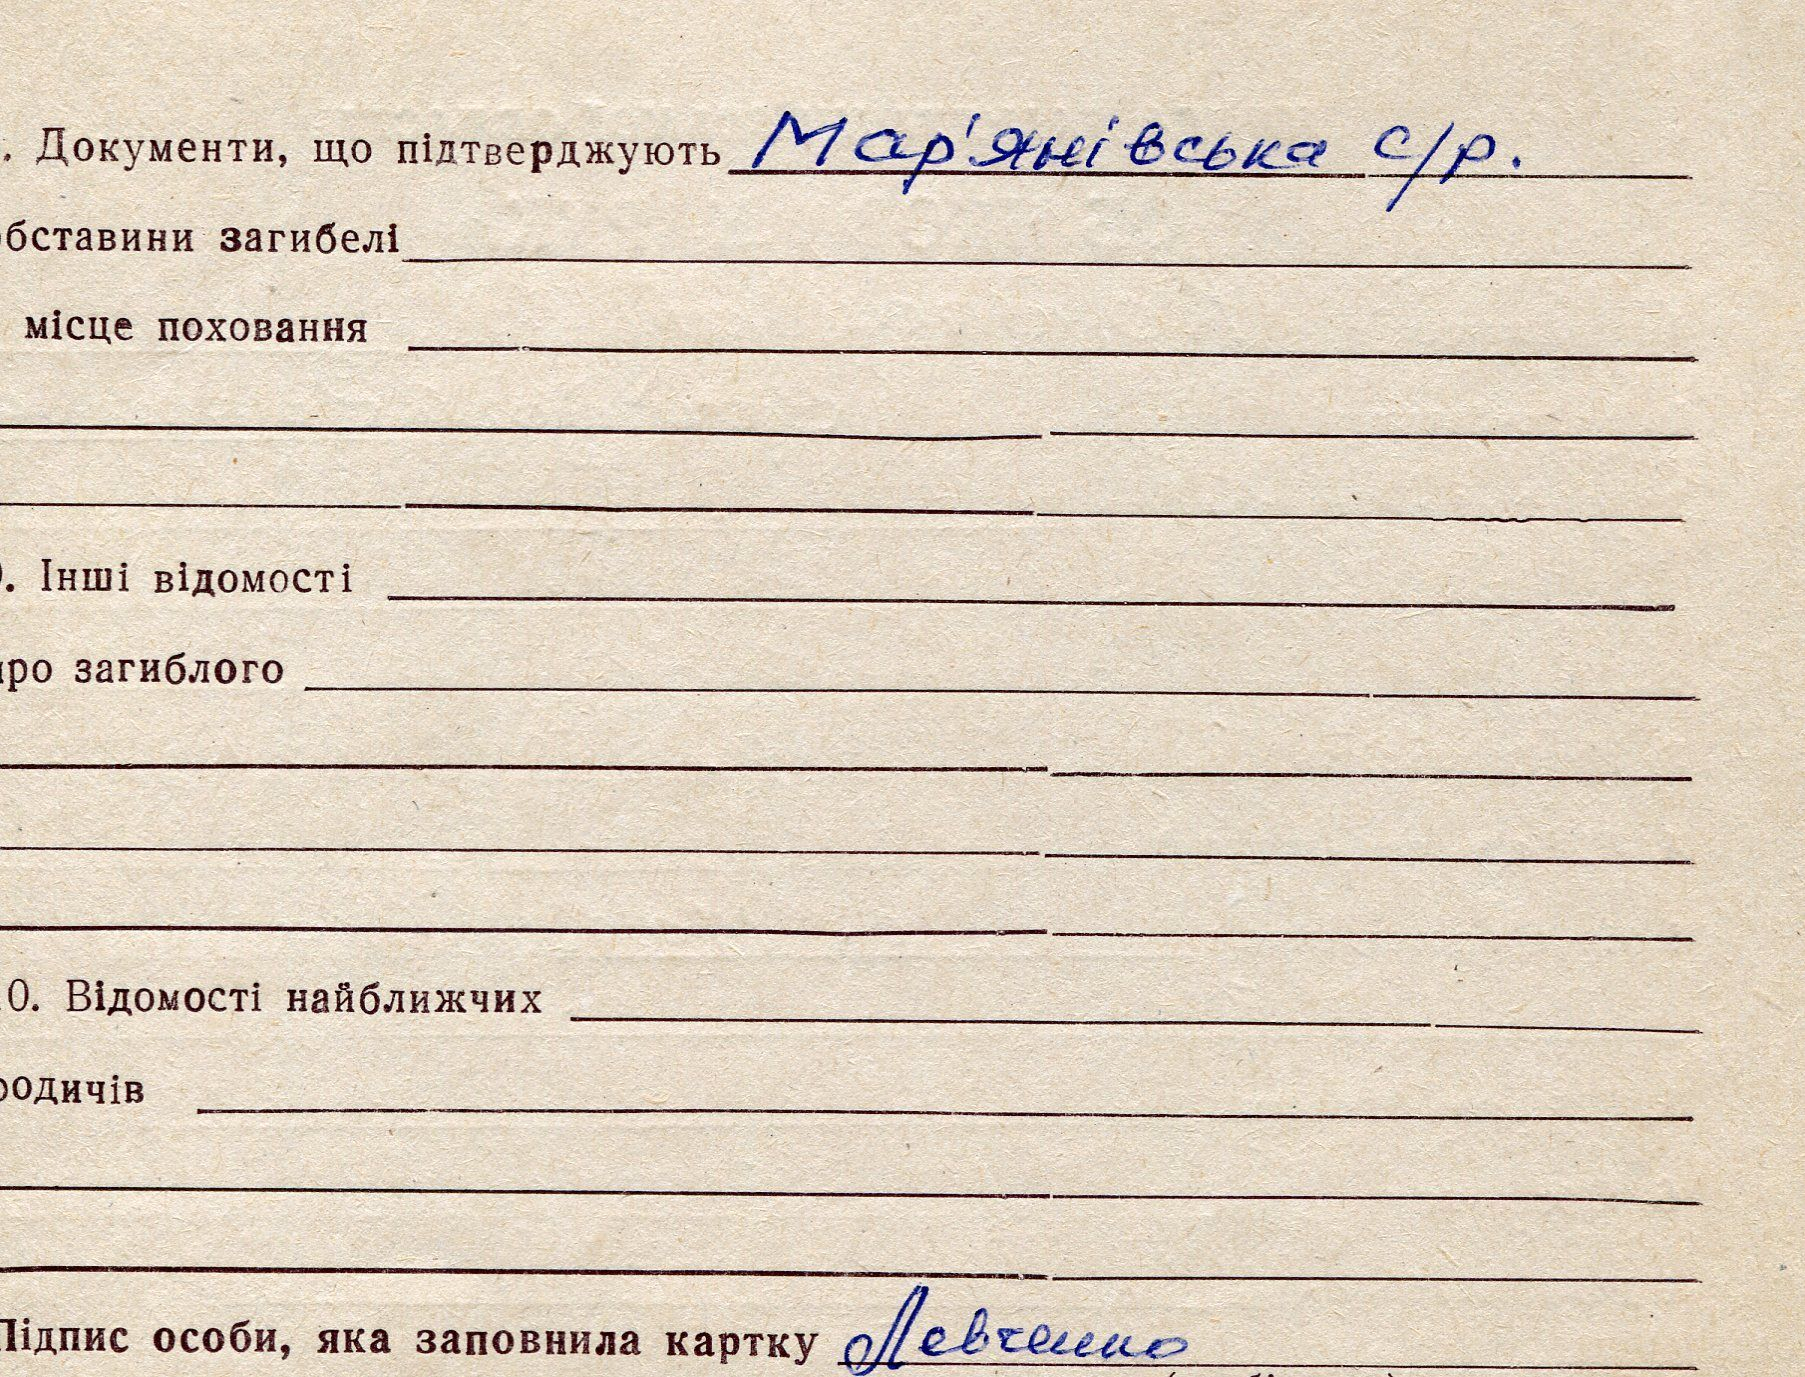 . Документи, що підтверджують Мар'янівська с/р.
обставини загибелі
місце поховання
9. Інші відомості
про загиблого
10. Відомості найближчих
родичів
Підпис особи, яка заповнила картку Левченко